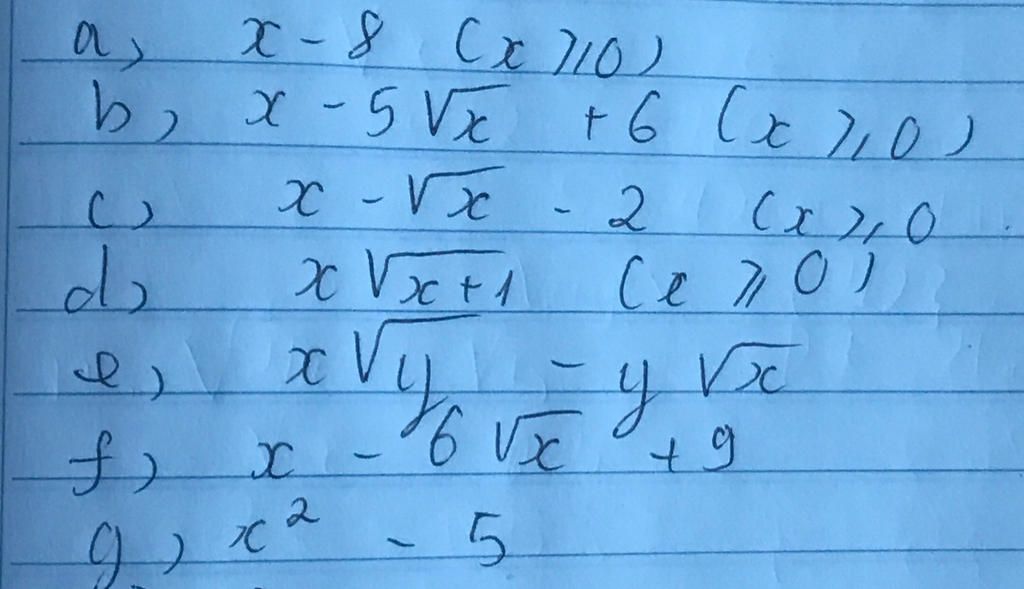 a) x - 8 (x ⩾ 0)
b) x - 5√x + 6 (x ⩾ 0)
c) x - √x - 2 (x ⩾ 0
d) x√(x+1) (x ⩾ 0)
e) x√y - y√x
f) x - 6√x + 9
g) x² - 5